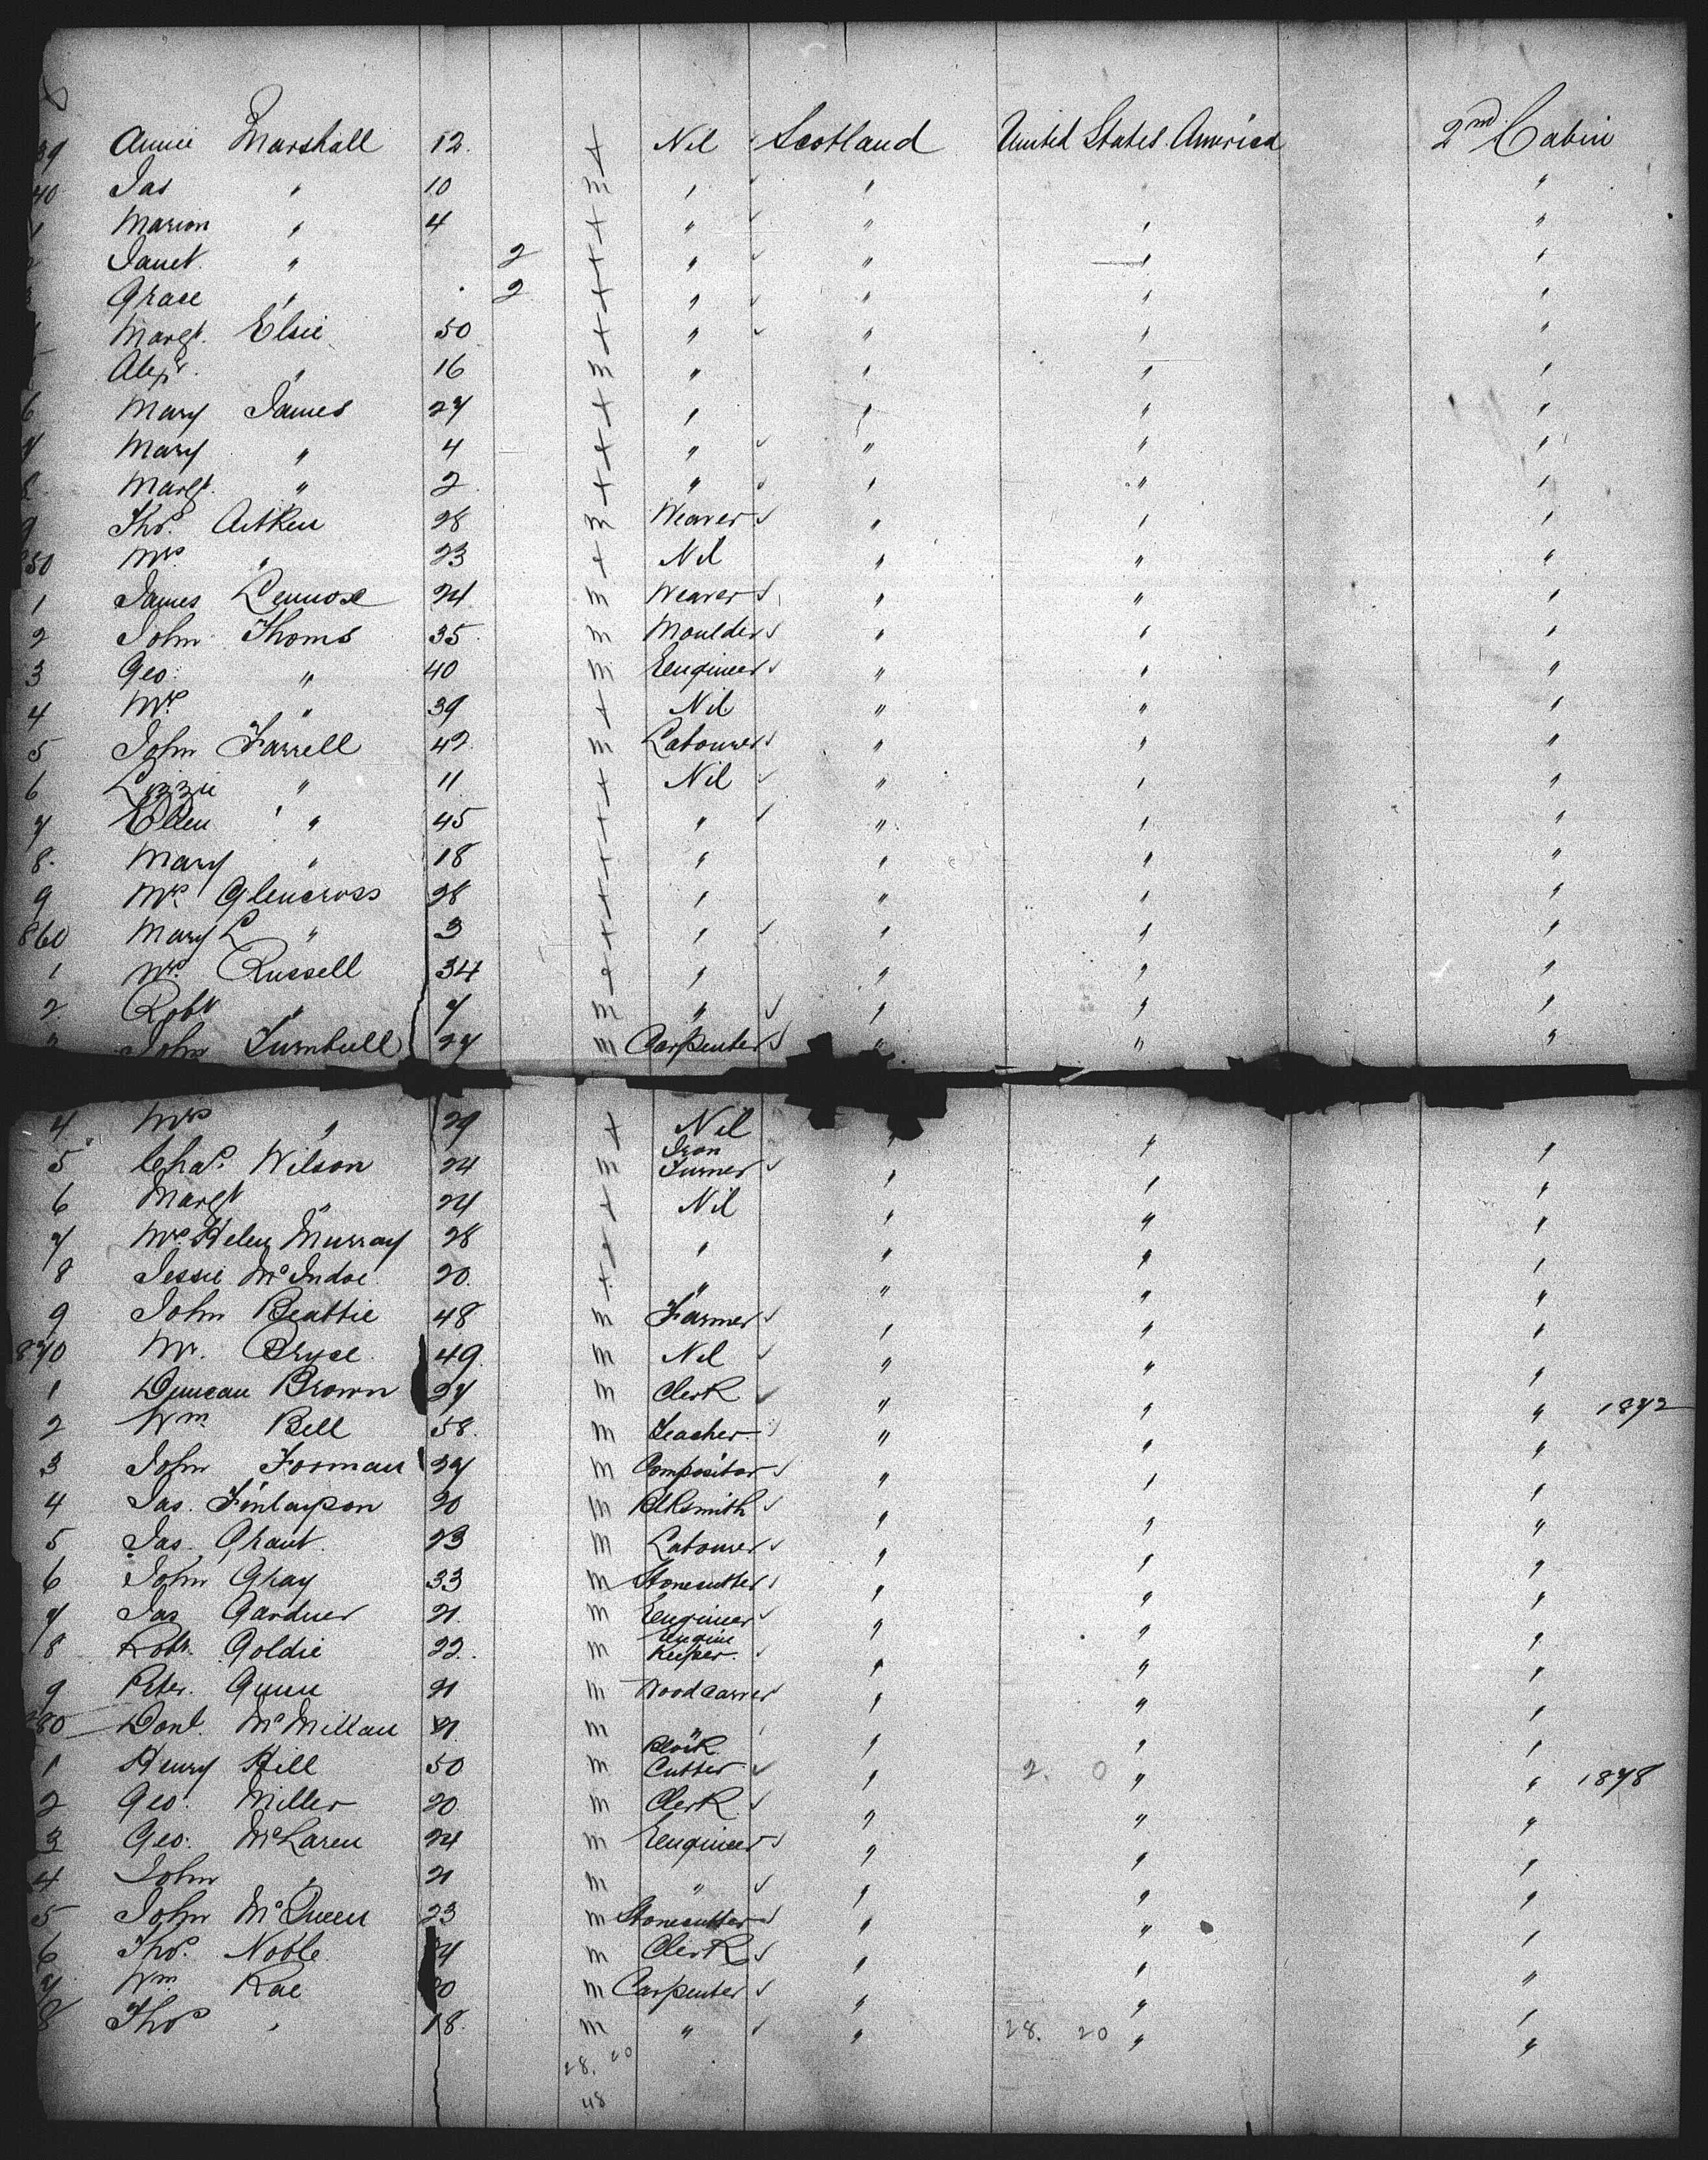 39 Annie Marshall 12. + Nil Scotland United States America 2nd Cabin
40 Jas " 10 m " " " "
1 Marion " 4 + " " " "
2 Janet " 2 + " " " "
3 Grace " 2 + " " " "
Margt. Elsie 50 + " " " "
Alexr. " 16 m " " " "
6 Mary James 27 + " " " "
7 Mary " 4 + " " " "
8 Margt. " 2 + " " " "
9 Thos. Aitken 28 m Weaver " " "
850 Mrs. " 23 + Nil " " "
1 James Lennox 24 m Weaver " " "
2 John Thoms 35 m Moulder " " "
3 Geo. " 40 m Engineer " " "
4 Mrs. " 39 + Nil " " "
5 John Farrell 42 m Labourer " " "
6 Lizzie " 11 + Nil " " "
7 Ellen " 45 + " " " "
8. Mary " 18 + " " " "
9 Mrs. Glencross 28 + " " " "
860 Mary L " 3 + " " " "
1 Mrs. Russell 34 + " " " "
2. Robt " 7 m " " " "
3 John Turnbull 27 m Carpenter " " "
4 Mrs " 29 + Nil " " "
5 Chas. Wilson 24 m Iron Turner " " "
6 Margt " 24 + Nil " " "
7 Mrs. Helen Murray 28 + " " " "
8 Jessie McIndoe 20. + " " " "
9 John Beattie 48 m Farmer " " "
870 Mr. Bryce 49. m Nil " " "
1 Duncan Brown 27 m Clerk " " " 1872
2 Wm. Bell 58. m Teacher " " "
3 John Forman 37 m Compositor " " "
4 Jas. Finlayson 20 m Blksmith " " "
5 Jas. Grant. 23 m Labourer " " "
6 John Gray 33 m Stonecutter " " "
7 Jas Gardner 21. m Engineer " " "
8 Robt. Goldie 22. m Engine Keeper. " " "
9 Peter. Gunn 21 m Woodcarver " " "
880 Donl. McMillan 21. m " " " "
1 Henry Hill 50 m Block Cutter " 2. 0 " " 1878
2 Geo. Miller 20 m Clerk " " "
3 Geo. McLaren 24 m Engineer " " "
4 John " 21 m " " " "
5 John McQueen 23 m Stonecutter " " "
6 Thos. Noble 4 m Clerk " " "
7 Wm Rae 0 m Carpenter " " "
8 Thos " 18. m " " 28. 20 " "
28. 20
48